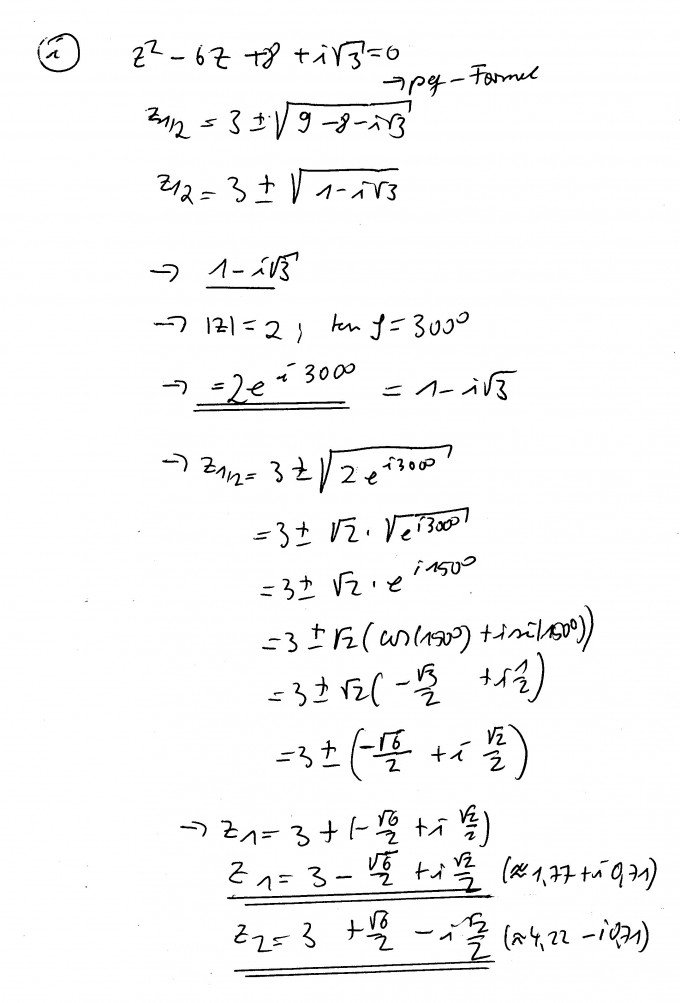 i z² - 6z + 8 + i√3 = 0
→ pq-Formel
z1/2 = 3 ± √(9 - 8 - i√3)
z12 = 3 ± √(1 - i√3)
→ 1 - i√3
→ |z| = 2; tan φ = 300°
→ = 2e^(i 300°) = 1 - i√3
→ z1/2 = 3 ± √(2e^(i300°))
= 3 ± √2 · √(e^(i300°))
= 3 ± √2 · e^(i150°)
= 3 ± √2 (cos(150°) + i sin(150°))
= 3 ± √2 (-√3/2 + i 1/2)
= 3 ± (-√6/2 + i √2/2)
→ z1 = 3 + (-√6/2 + i √2/2)
z1 = 3 - √6/2 + i √2/2 (≈ 1,77 + i 0,71)
z2 = 3 + √6/2 - i √2/2 (≈ 4,22 - i 0,71)